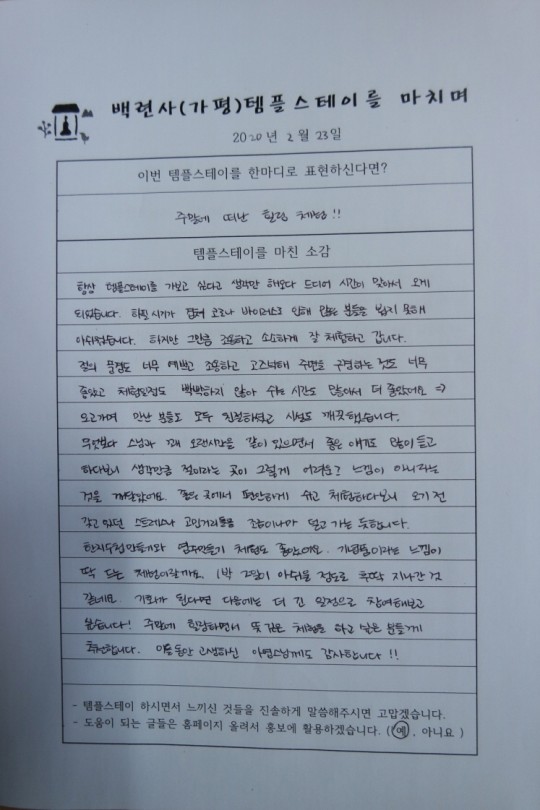 백련사(가평)템플스테이를 마치며
2020년 2월 23일
이번 템플스테이를 한마디로 표현하신다면?
주말에 떠난 힐링 체험!!
템플스테이를 마친 소감
항상 템플스테이를 가보고 싶다고 생각만 해오다 드디어 시간이 맞아서 오게
되었습니다. 하필 시기가 겹쳐 코로나 바이러스로 인해 많은 분들을 뵙지 못해
아쉬웠습니다. 하지만 그만큼 조용하고 소소하게 잘 체험하고 갑니다.
절의 풍경도 너무 예쁘고 조용하고 고즈넉해 주변을 구경하는 것도 너무
좋았고 체험일정도 빡빡하지 않아 쉬는 시간도 많아서 더 좋았어요 =)
오고가며 만난 분들도 모두 친절하셨고 시설도 깨끗했습니다.
무엇보다 스님과 꽤 오랜시간을 같이 있으면서 좋은 얘기도 많이 듣고
하다보니 생각만큼 절이라는 곳이 그렇게 어려운? 느낌이 아니라는
것을 깨달았어요. 좋은 곳에서 편안하게 쉬고 체험하다보니 오기 전
갖고 있던 스트레스나 고민거리들을 조금이나마 덜고 가는 듯합니다.
한지수첩만들기와 염주만들기 체험도 좋았어요. 기념품이라는 느낌이
딱 드는 체험이랄까요. 1박 2일이 아쉬울 정도로 후딱 지나간 것
같네요. 기회가 된다면 다음에는 더 긴 일정으로 참여해보고
싶습니다! 주말에 힐링하면서 뜻 깊은 체험을 하고 싶은 분들께
추천합니다. 이틀동안 고생하신 스님께도 감사합니다!!
- 템플스테이 하시면서 느끼신 것들을 진솔하게 말씀해주시면 고맙겠습니다.
- 도움이 되는 글들은 홈페이지 올려서 홍보에 활용하겠습니다. (예, 아니요)